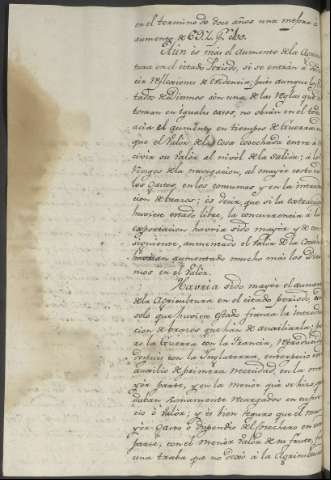 en el termino de doce años una mejora o
aumento de 692.
Aun és mas el aumento de la Agricul
tura en el citado Periodo, si se entrán à
reflexiones de evidencia; pues aunque los Es
tados de Diezmos són una de las reglas que
toman en iguales casos, no obrán en el todo
acia el aumento en tiempos de Guerra en
que el Valor de la Cosa cosechada entra à
su Valor al nivel de la salida; a los
riesgos de la navegacion, al mayor
los Gastos, en los consumos y en la introduc
cion de brazos; és decir, que si la
huviese estado libre, la concurrencia à la
exportacion havria sido mayor, y de con
siguiente, aumentado el Valor de la
havrian aumentado mucho más los Diez
mos en el Valor.
Havria sido mayor el aumento
de la Agricultura en el citado Periodo, con
solo que huviese quedado franca la introduc
cion de brazos que hán de auxiliarla; pues
la Guerra con la Francia,
despues con la Inglaterra, entorpeció
auxilio de primera necesidad, en la ma
yor parte, y en la menor que se hizo
sumamente recargados en su pre
cio ó Valor; y és bien seguro que el ma
yor Gasto ó Dispendio del Cosechero en una
parte, con el menor Valor de su fruto,
una traba que no dexó à la Agricultura